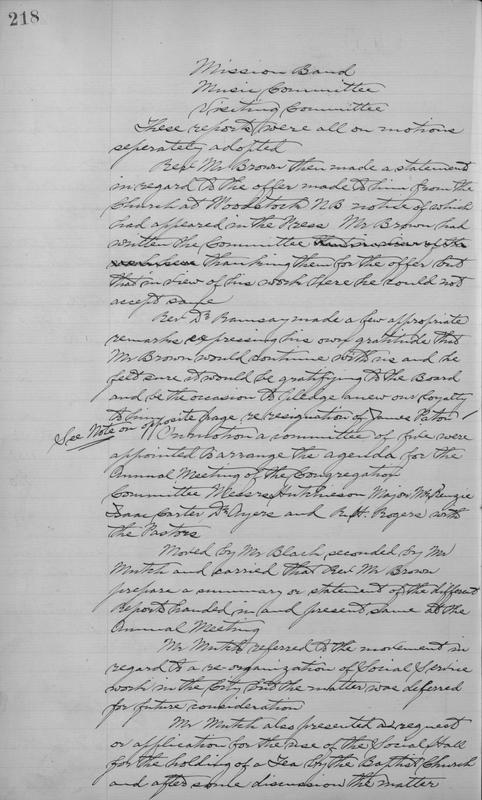 218
Mission Band
Music Committee
Visiting Committee
These reports were all on motions
seperately adopted
Revd Mr Brown then made a statement
in regard to the offer made to him from the
Church at Woodstock NB notice of which
had appeared in the Press Mr Brown had
written the Committee
thanking them for the offer but
that in view of his work here he could not
accept same
Revd Dr Ramsay made a few appropriate
remarks expressing his own gratitude that
Mr Brown would continue with us and he
felt sure it would be gratifying to the Board
and be the occasion to pledge anew our loyalty
to him
See Note on opposite page re resignation of James Paton
On motion a committee of five were
appointed to arrange the agenda for the
Annual Meeting of the Congregation
Committee Messrs Hutcheson Major McKenzie
Isaac Carter Dr Ayers and R.H. Rogers with
the Pastors
Moved by Mr Black, seconded by Mr
Mutch and carried that Revd Mr Brown
prepare a summary or statement of the different
reports handed in and present same at the
Annual Meeting
Mr Mutch referred to the movement in
regard to a re-organization of Social Service
work in the City but the matter was deferred
for future consideration
Mr Mutch also presented a request
or application for the use of the Social Hall
for the holding of a Tea by the Baptist Church
and after some discussion the matter